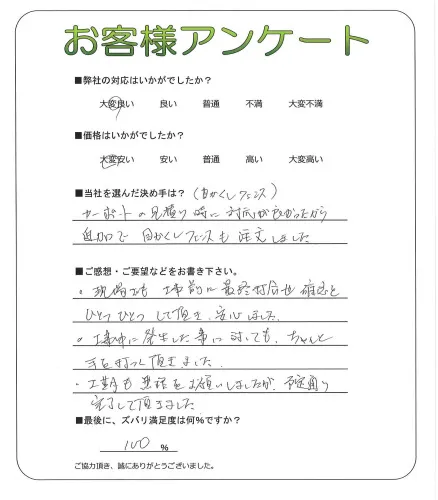 お客様アンケート
■弊社の対応はいかがでしたか？
大変良い 良い 普通 不満 大変不満
■価格はいかがでしたか？
大変安い 安い 普通 高い 大変高い
■当社を選んだ決め手は？（目かくしフェンス）
カーポートの見積り時に対応が良かったから
追加で目かくしフェンスも注文しました
■ご感想・ご要望などをお書き下さい。
・現場でも工事前に最終打合せ確認を
ひとつひとつして頂き、安心しました。
・工事中に発生した事に対しても、ちゃんと
手を打って頂きました。
・工期も無理をお願いしましたが、予定通り
完了して頂きました
■最後に、ズバリ満足度は何％ですか？
100 ％
ご協力頂き、誠にありがとうございました。